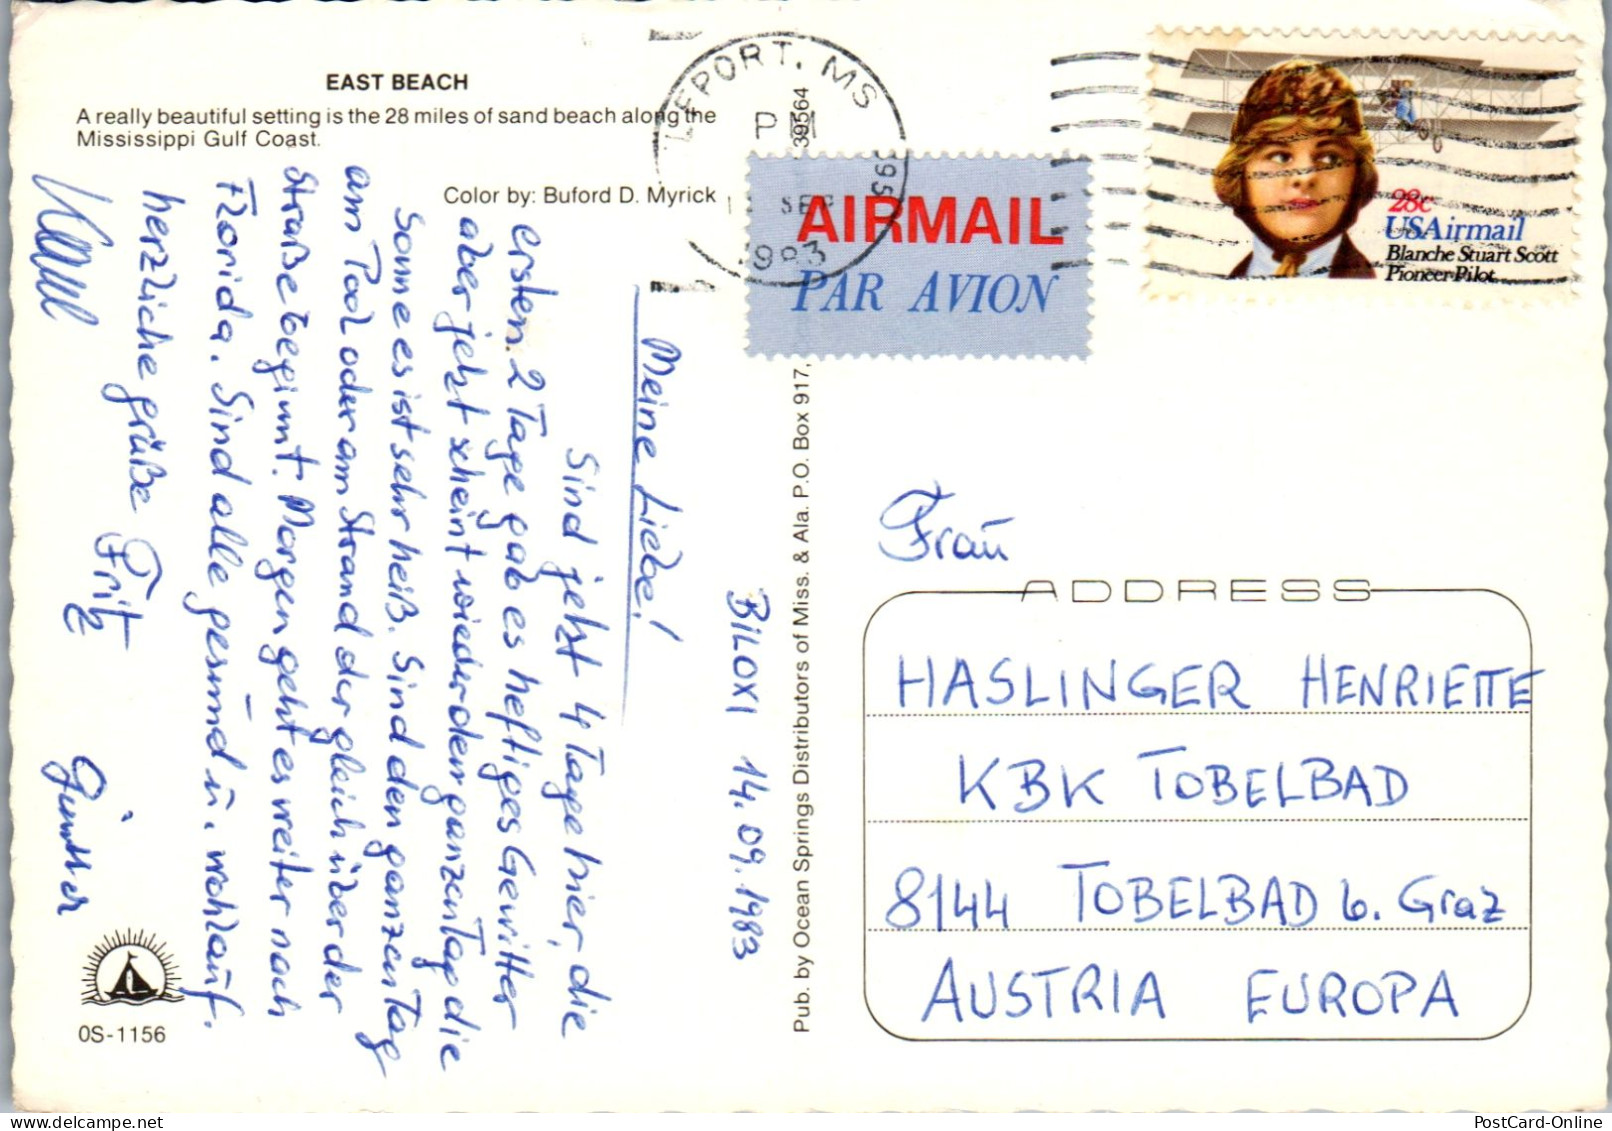 EAST BEACH
A really beautiful setting is the 28 miles of sand beach along the
Mississippi Gulf Coast.
Color by: Buford D. Myrick
BILOXI 14.09.1983
Meine Liebe!
Sind jetzt 4 Tage hier, die
ersten 2 Tage gab es heftiges Gewitter
aber jetzt scheint wieder den ganzen Tag die
Sonne es ist sehr heiß. Sind den ganzen Tag
am Pool oder am Strand der gleich über der
Straße beginnt. Morgen geht es weiter nach
Florida. Sind alle gesund u. wohlauf.
herzliche grüße Fritz
Günther
OS-1156
Pub. by Ocean Springs Distributors of Miss. & Ala. P.O. Box 917,
39564
PORT, MS
PM
SEP
1983
395
AIRMAIL
PAR AVION
28c
USAirmail
Blanche Stuart Scott
Pioneer Pilot
Frau
ADDRESS
HASLINGER HENRIETTE
KBK TOBELBAD
8144 TOBELBAD b. Graz
AUSTRIA EUROPA
PostCard-Online